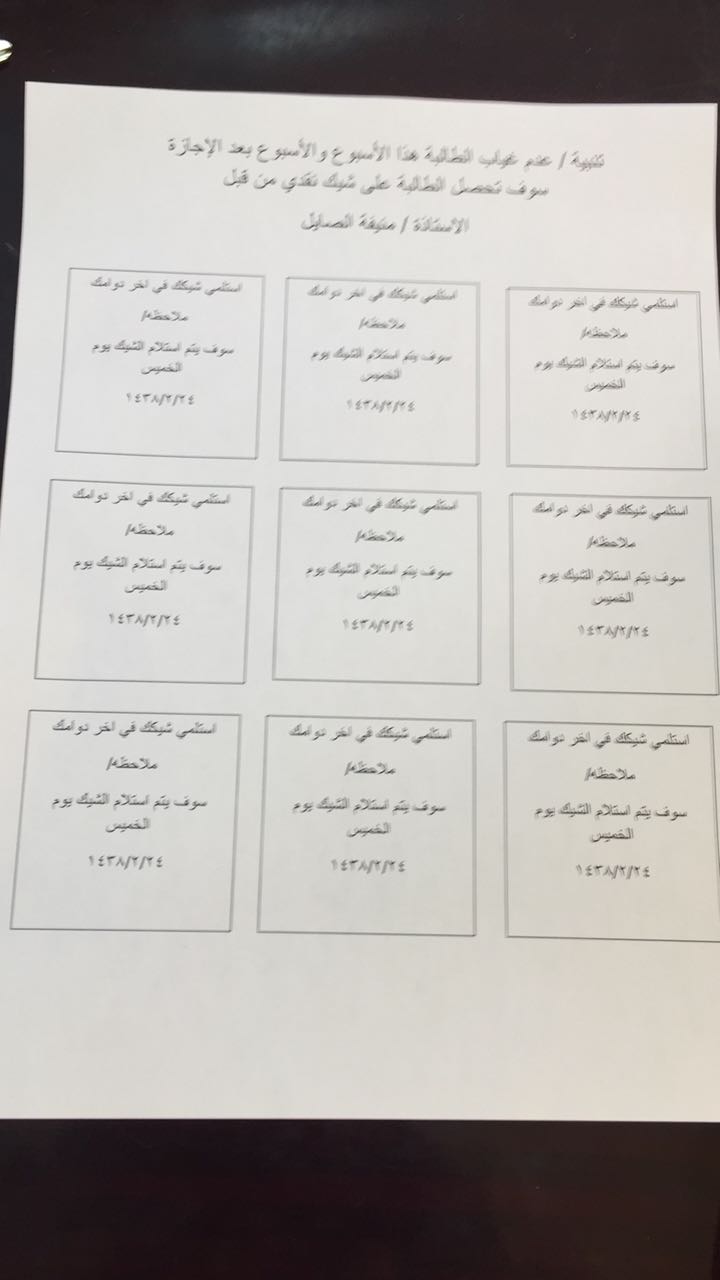 تنبية / عدم غياب الطالبة هذا الأسبوع والأسبوع بعد الإجازة
سوف تحصل الطالبة على شيك نقدي من قبل
الأستاذة / منيفة الصايل
استلمي شيكك في اخر دوامك
ملاحظه/
سوف يتم استلام الشيك يوم
الخميس
١٤٣٨/٢/٢٤
استلمي شيكك في اخر دوامك
ملاحظه/
سوف يتم استلام الشيك يوم
الخميس
١٤٣٨/٢/٢٤
استلمي شيكك في اخر دوامك
ملاحظه/
سوف يتم استلام الشيك يوم
الخميس
١٤٣٨/٢/٢٤
استلمي شيكك في اخر دوامك
ملاحظه/
سوف يتم استلام الشيك يوم
الخميس
١٤٣٨/٢/٢٤
استلمي شيكك في اخر دوامك
ملاحظه/
سوف يتم استلام الشيك يوم
الخميس
١٤٣٨/٢/٢٤
استلمي شيكك في اخر دوامك
ملاحظه/
سوف يتم استلام الشيك يوم
الخميس
١٤٣٨/٢/٢٤
استلمي شيكك في اخر دوامك
ملاحظه/
سوف يتم استلام الشيك يوم
الخميس
١٤٣٨/٢/٢٤
استلمي شيكك في اخر دوامك
ملاحظه/
سوف يتم استلام الشيك يوم
الخميس
١٤٣٨/٢/٢٤
استلمي شيكك في اخر دوامك
ملاحظه/
سوف يتم استلام الشيك يوم
الخميس
١٤٣٨/٢/٢٤